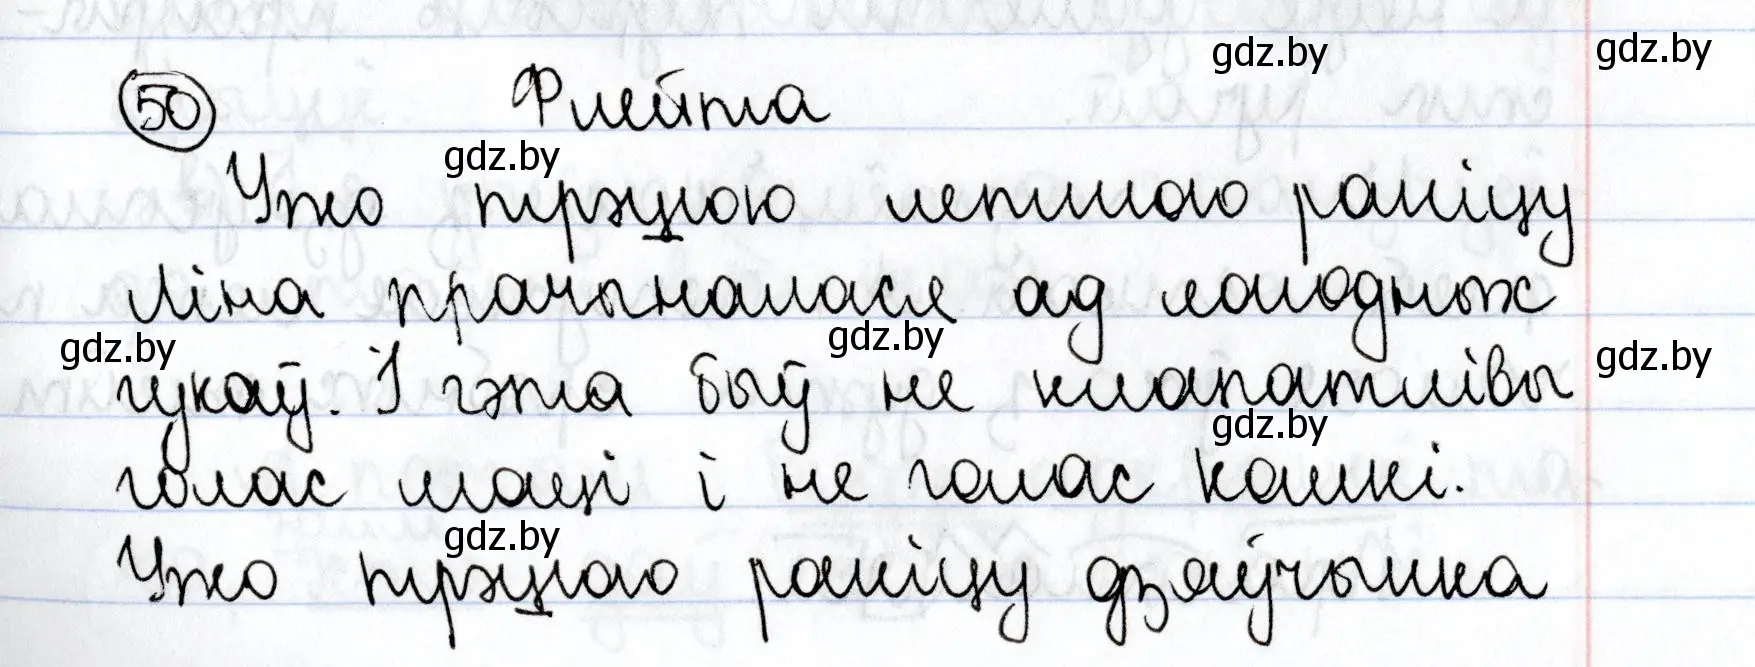 50 Флейта
Ужо трэцюю летнюю раніцу
Ліна прачыналася ад лагодных
гукаў. І гэта быў не клапатлівы
голас маці і не голас кошкі.
Ужо трэцюю раніцу дзяўчынка
gdz.by
gdz.by
gdz.by
gdz.by
gdz.by
gdz.by
gdz.by
gdz.by